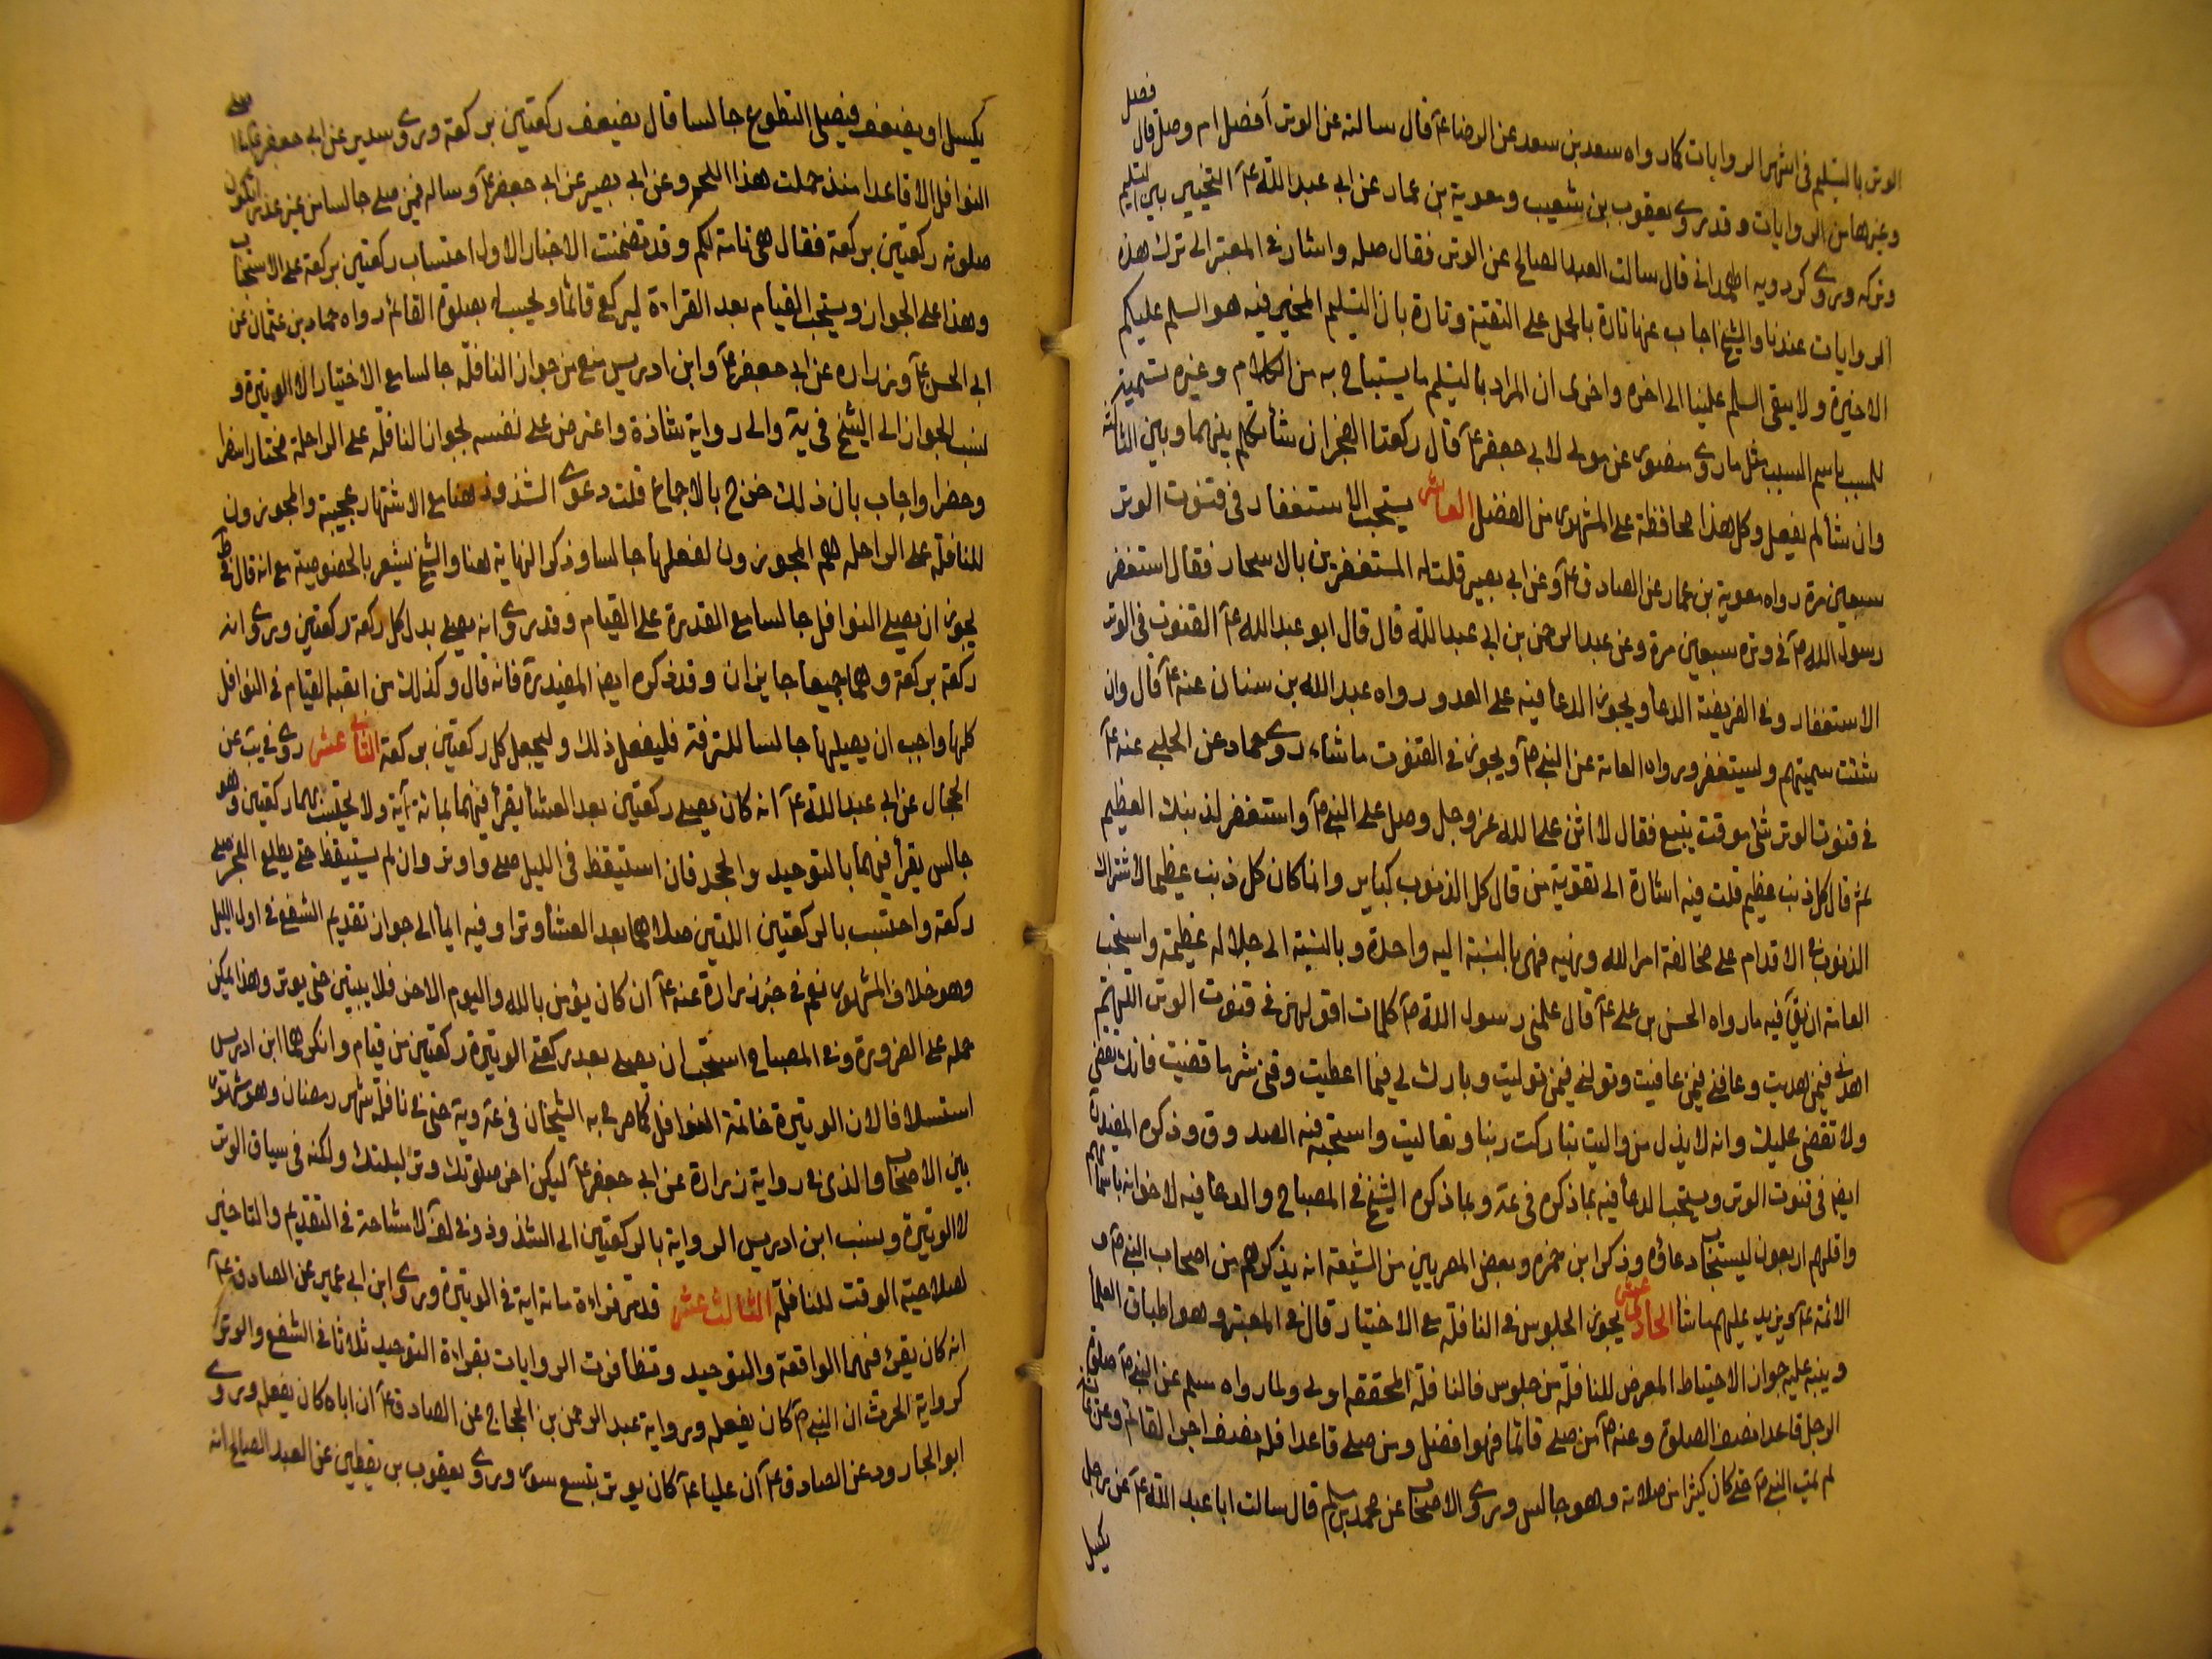 الوتر بالتسليم في اشهر الروايات كما رواه سعد بن سعد عن الرضا عـ قال سالته عن الوتر أفضل ام وصل قال فصل
وغيرها من الروايات وقد روى يعقوب بن شعيب ومعوية بن عمار عن ابي عبد الله عـ التخيير بين التسليم
وتركه وروى كردويه الهمداني قال سالت العبد الصالح عن الوتر فقال صله واشار في المعتبر الى ترك هذه
الروايات عندنا والشيخ اجاب عنها تارة بالحمل على التقية وتارة بان التسليم المخير فيه هو السلم عليكم
الاخيرة ولا يبقى السلم علينا الى اخره واخرى ان المراد بالتسليم ما يستباح به من الكلام وغيره تسمية
للمسبب باسم السبب مثل ما روى منصور عن مولى لابي جعفر عـ قال ركعتا الفجر ان شأ تكلم بينهما وبين الثالثة
وان شألم يفعل وكل هذا محافظة على المشهور من الفصل العاشر يستحب الاستغفار في قنوت الوتر
سبعين مرة رواه معوية بن عمار عن الصادق عـ وعن ابي بصير قلت له المستغفرين بالاسحار فقال استغفر
رسول الله صـ في وتره سبعين مرة وعن عبد الرحمن بن ابي عبد الله قال قال ابو عبد الله عـ القنوت في الوتر
الاستغفار وفي الفريضة الدعا ويجوز الدعا فيه على العدو رواه عبد الله بن سنان عنه عـ قال وان
شئت سميتهم وليستغفر ورواه العامة عن النبي صـ ويجوز في القنوت ما شاء روى حماد عن الحلبي عنه عـ
في قنوت الوتر شئ موقت يتبع فقال لا اثن على الله عز وجل وصل على النبي صـ واستغفر لذنبك العظيم
ثم قال كل ذنب عظيم قلت فيه اشارة الى تقوية من قال كل الذنوب كباير وانما كان كل ذنب عظيما لاشتراك
الذنوب في الاقدام على مخالفة امر الله ونهيه فهي بالنسبة اليه واحدة وبالنسبة الى جلاله عظيمة واستحب
العامة ان يق فيه ما رواه الحسن بن علي عـ قال علمني رسول الله صـ كلمات اقولهن في قنوت الوتر اللهم
اهدني فيمن هديت وعافني فيمن عافيت وتولني فيمن توليت وبارك لي فيما اعطيت وقني شر ما قضيت فانك تقضي
ولا تقضى عليك وانه لا يذل من واليت تباركت ربنا وتعاليت واستحبه فيه الصدوق وذكره المفيد
ايضا في قنوت الوتر ويستحب الدعا فيه بما ذكره في عة وبما ذكره الشيخ في المصباح والدعا فيه لاخوانه باسمائهم
واقلهم اربعون ليستجاب دعاؤه وذكر ابن حمزه وبعض المصريين من الشيعة انه يذكرهم من اصحاب النبي صـ و
الائمة عـ ويزيد عليهم ما شأ الحادي عشر يجوز الجلوس في النافلة مع الاختيار قال في المعتبر وهو اطباق العلمأ
وينبه عليه جواز الاحتياط المعرض للنافلة من جلوس فالنافلة المحققه اولى ولما رواه مسلم عن النبي صـ صلوة
الرجل قاعدا نصف الصلوة وعنه صـ من صلى قائما فهو افضل ومن صلى قاعدا فله نصف اجر القائم وعن عائشة
لم يمت النبي صـ حتى كان كثيرا من صلاته وهو جالس وروى الاصحاب عن محمد بن مسلم قال سالت ابا عبد الله عـ عن رجل
يكسل
يكسل او يضعف فيصلي التطوع جالسا قال يضعف ركعتين بركعة وروى سدير عن ابي جعفر عـ
النوافل الا قاعدا منذ حملت هذا اللحم وعن ابي بصير عن ابي جعفر عـ وساله فيمن صلى جالسا من غير عذر اتكون
صلوته ركعتين بركعة فقال هي تامة لكم وقد تضمنت الاخبار الاول احتساب ركعتين بركعة على الاستحباب
وهذا على الجواز ويستحب القيام بعد القراءة ليركع قائما ويحسب له بصلوة القائم رواه حماد بن عثمان عن
ابي الحسن عـ وزراره عن ابي جعفر عـ وابن ادريس منع من جواز النافلة جالسا مع الاختيار الا الوتيرة و
نسب الجواز الى الشيخ في ية والى رواية شاذة واعترض على نفسه بجواز النافلة على الراحلة مختارا سفرا
وحضرا واجاب بان ذلك خرج بالاجماع قلت دعوى الشذوذ هنا مع الاشتهار عجيبة والمجوزون
للنافلة على الراحلة هم المجوزون لفعلها جالسا وذكر النهاية هنا والشيخ يشعر بالخصوصية مع انه قال في ط
يجوز ان يصلي النوافل جالسا مع القدرة على القيام وقد روى انه يصلي بدل كل ركعة ركعتين وروى انه
ركعة بركعة وهما جميعا جايزان وقد ذكره ايضا المفيد ره فانه قال وكذلك من اتعبه القيام في النوافل
كلها واحب ان يصليها جالسا للترفه فليفعل ذلك وليجعل كل ركعتين بركعة الثاني عشر روى في يب عن
الحجال عن ابي عبد الله عـ انه كان يصلي ركعتين بعد العشأ يقرأ فيهما بمائة آية ولا يحتسب بهما ركعتين وهو
جالس يقرأ فيهما بالتوحيد والجحد فان استيقظ في الليل صلى واوتر وان لم يستيقظ حتى يطلع الفجر صلى
ركعة واحتسب بالركعتين اللتين صلاهما بعد العشأ وترا وفيه ايمأ الى جواز تقديم الشفع في اول الليل
وهو خلاف المشهور نعم في خبر زرارة عنه عـ ان كان يؤمن بالله واليوم الاخر فلا يبيتن حتى يوتر وهذا يمكن
حمله على الضرورة وفي المصباح استحب ان يصلي بعد ركعتي الوتيرة ركعتين من قيام وانكرهما ابن ادريس
استسلافا لان الوتيرة خاتمة النوافل كما صرح به الشيخان في عة وية حتى في نافلة شهر رمضان وهو مشهور
بين الاصحاب والذي في رواية زرارة عن ابي جعفر عـ ليكن اخر صلوتك وتر ليلتك ولكنه في سياق الوتر
لا الوتيرة ونسب ابن ادريس الرواية بالركعتين الى الشذوذ وفي لف لا مشاحة في التقديم والتاخير
لصلاحية الوقت للنافلة الثالث عشر قد مر قراءة مائة اية في الوتيرة وروى ابن ابي عمير عن الصادق عـ
انه كان يقرئ فيهما الواقعة والتوحيد وتظافرت الروايات بقراءة التوحيد ثلاثا في الشفع والوتر
كرواية الحرث ان النبي صـ كان يفعله ورواية عبد الرحمن بن الحجاج عن الصادق عـ ان اباه كان يفعله وروى
ابو الجارود عن الصادق عـ ان عليا عـ كان يوتر بتسع سور وروى يعقوب بن يقطين عن العبد الصالح انه